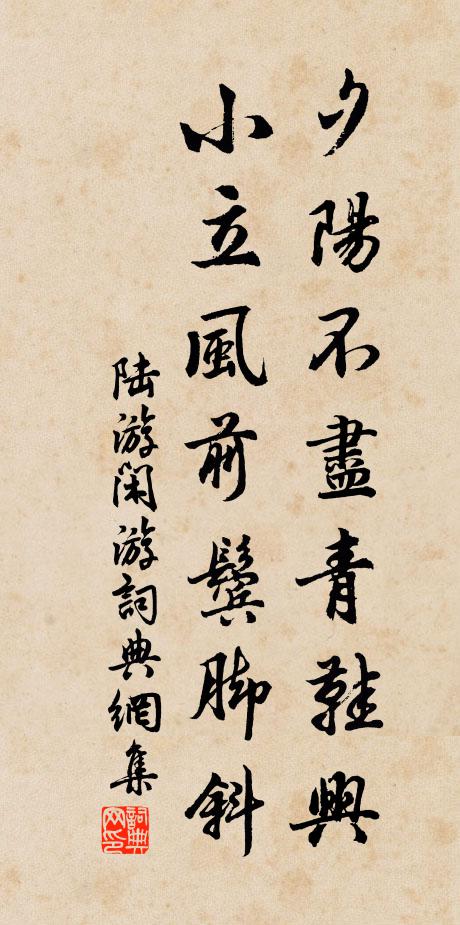 夕陽不盡青鞋興
小立風前鬢脚斜
陆游闲游詞典網集
詞典網印